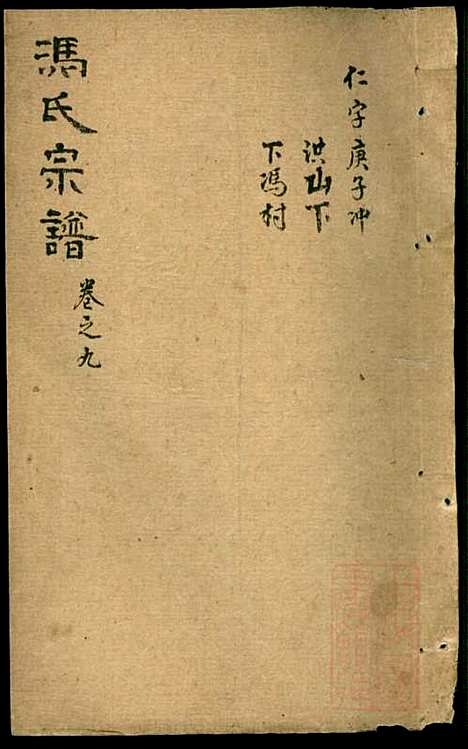 仁字庚子冲
洪山下
下冯村
馮氏宗譜
卷之九